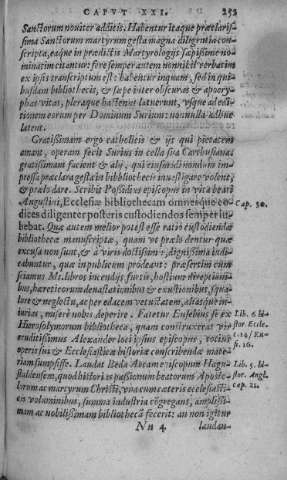 CAPVT XXI. 252
Sanctorum nouiter additis. Habentur itaque præclaris-
sima Sanctorum martyrum gesta magna diligentia con-
scripta, eaque in prædictis Martyrologijs sæpissime no-
minatim citantur: fere semper autem
ex ipsis transcriptum est: habentur inquam, sed in qui-
busdam bibliothecis, & sæpe inter obscuras & apocry-
phas vitas, pleraque hactenus latuerunt, vsque ad edi-
tionem eorum per Dominum Surium: nonnulla adhuc
latent.
Gratissimam ergo catholicis & ijs qui pietatem
amant, operam fecit Surius in cella sua Carthusiana:
gratissimam facient & alij, qui eiusdimodi
præclara gesta in bibliothecis inuestigare volent,
& prælo dare. Scribit Possidius episcopus in vita beati
Augustini, Ecclesiæ bibliothecam omnesque co- Cap. 30.
dices diligenter posteris custodiendos semper iu-
bebat. Quæ autem melior potest esse ratio custodiendæ
bibliothecæ manuscriptæ, quam vt prælo dentur quæ
excusa non sunt, & à viris doctissimis, dignissima iudi-
cabuntur, quæ in publicum prodeant: præsertim cum
sciamus Ms. libros incendijs, furtis, hostium direptioni-
bus, hæreticorum deuastationibus & exustionibus, squa-
lore & neglectu, ac per edacem vetustatem, aliasque in-
iurias, misere nobis deperire. Fatetur Eusebius se ex Lib. 6. hi-
Hierosolymorum bibliotheca, quam construxerat vir stor. Eccle.
eruditissimus Alexander loci ipsius episcopus, totius
operis sui & Ecclesiasticæ historiæ conscribendæ mate- 16.
riam sumpsisse. Laudat Beda Accam episcopum Hagu- Lib. 5. hi-
staldensem, quod historias passionum beatorum Aposto- stor. Angl.
lorum ac martyrum Christi, vna cum cæteris ecclesiasti- cap. 21.
cis voluminibus, summa industria cõgregans, amplissi-
mam ac nobilissimam bibliothecã fecerit: an non igitur
Nn 4. laudan-